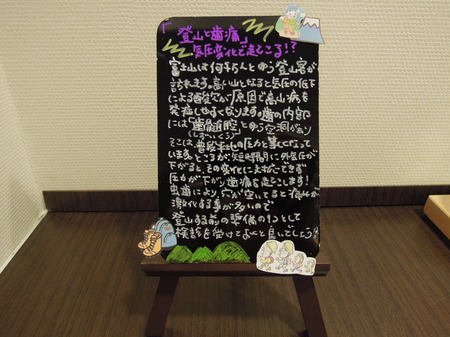 「登山と歯痛」
気圧変化で起こる!?
富士山は何千万人と申う登山客が
訪れます。高い山となると気圧の低下
による酸欠が原因で高山病を
発症しやすくなります。歯の内部
には「歯髄腔」と申う空洞があり
(しずいくう)
そこは、普段本地の圧力と事しく
います。ところが、短時間に外気圧が
下がると、その変化に対応できず
圧力が下がり歯痛を起こします!
虫歯により穴が空いてると痛みが
激化する事が多いので
登山する前の準備の1つとして
検診を受けておくと良いでしょう!